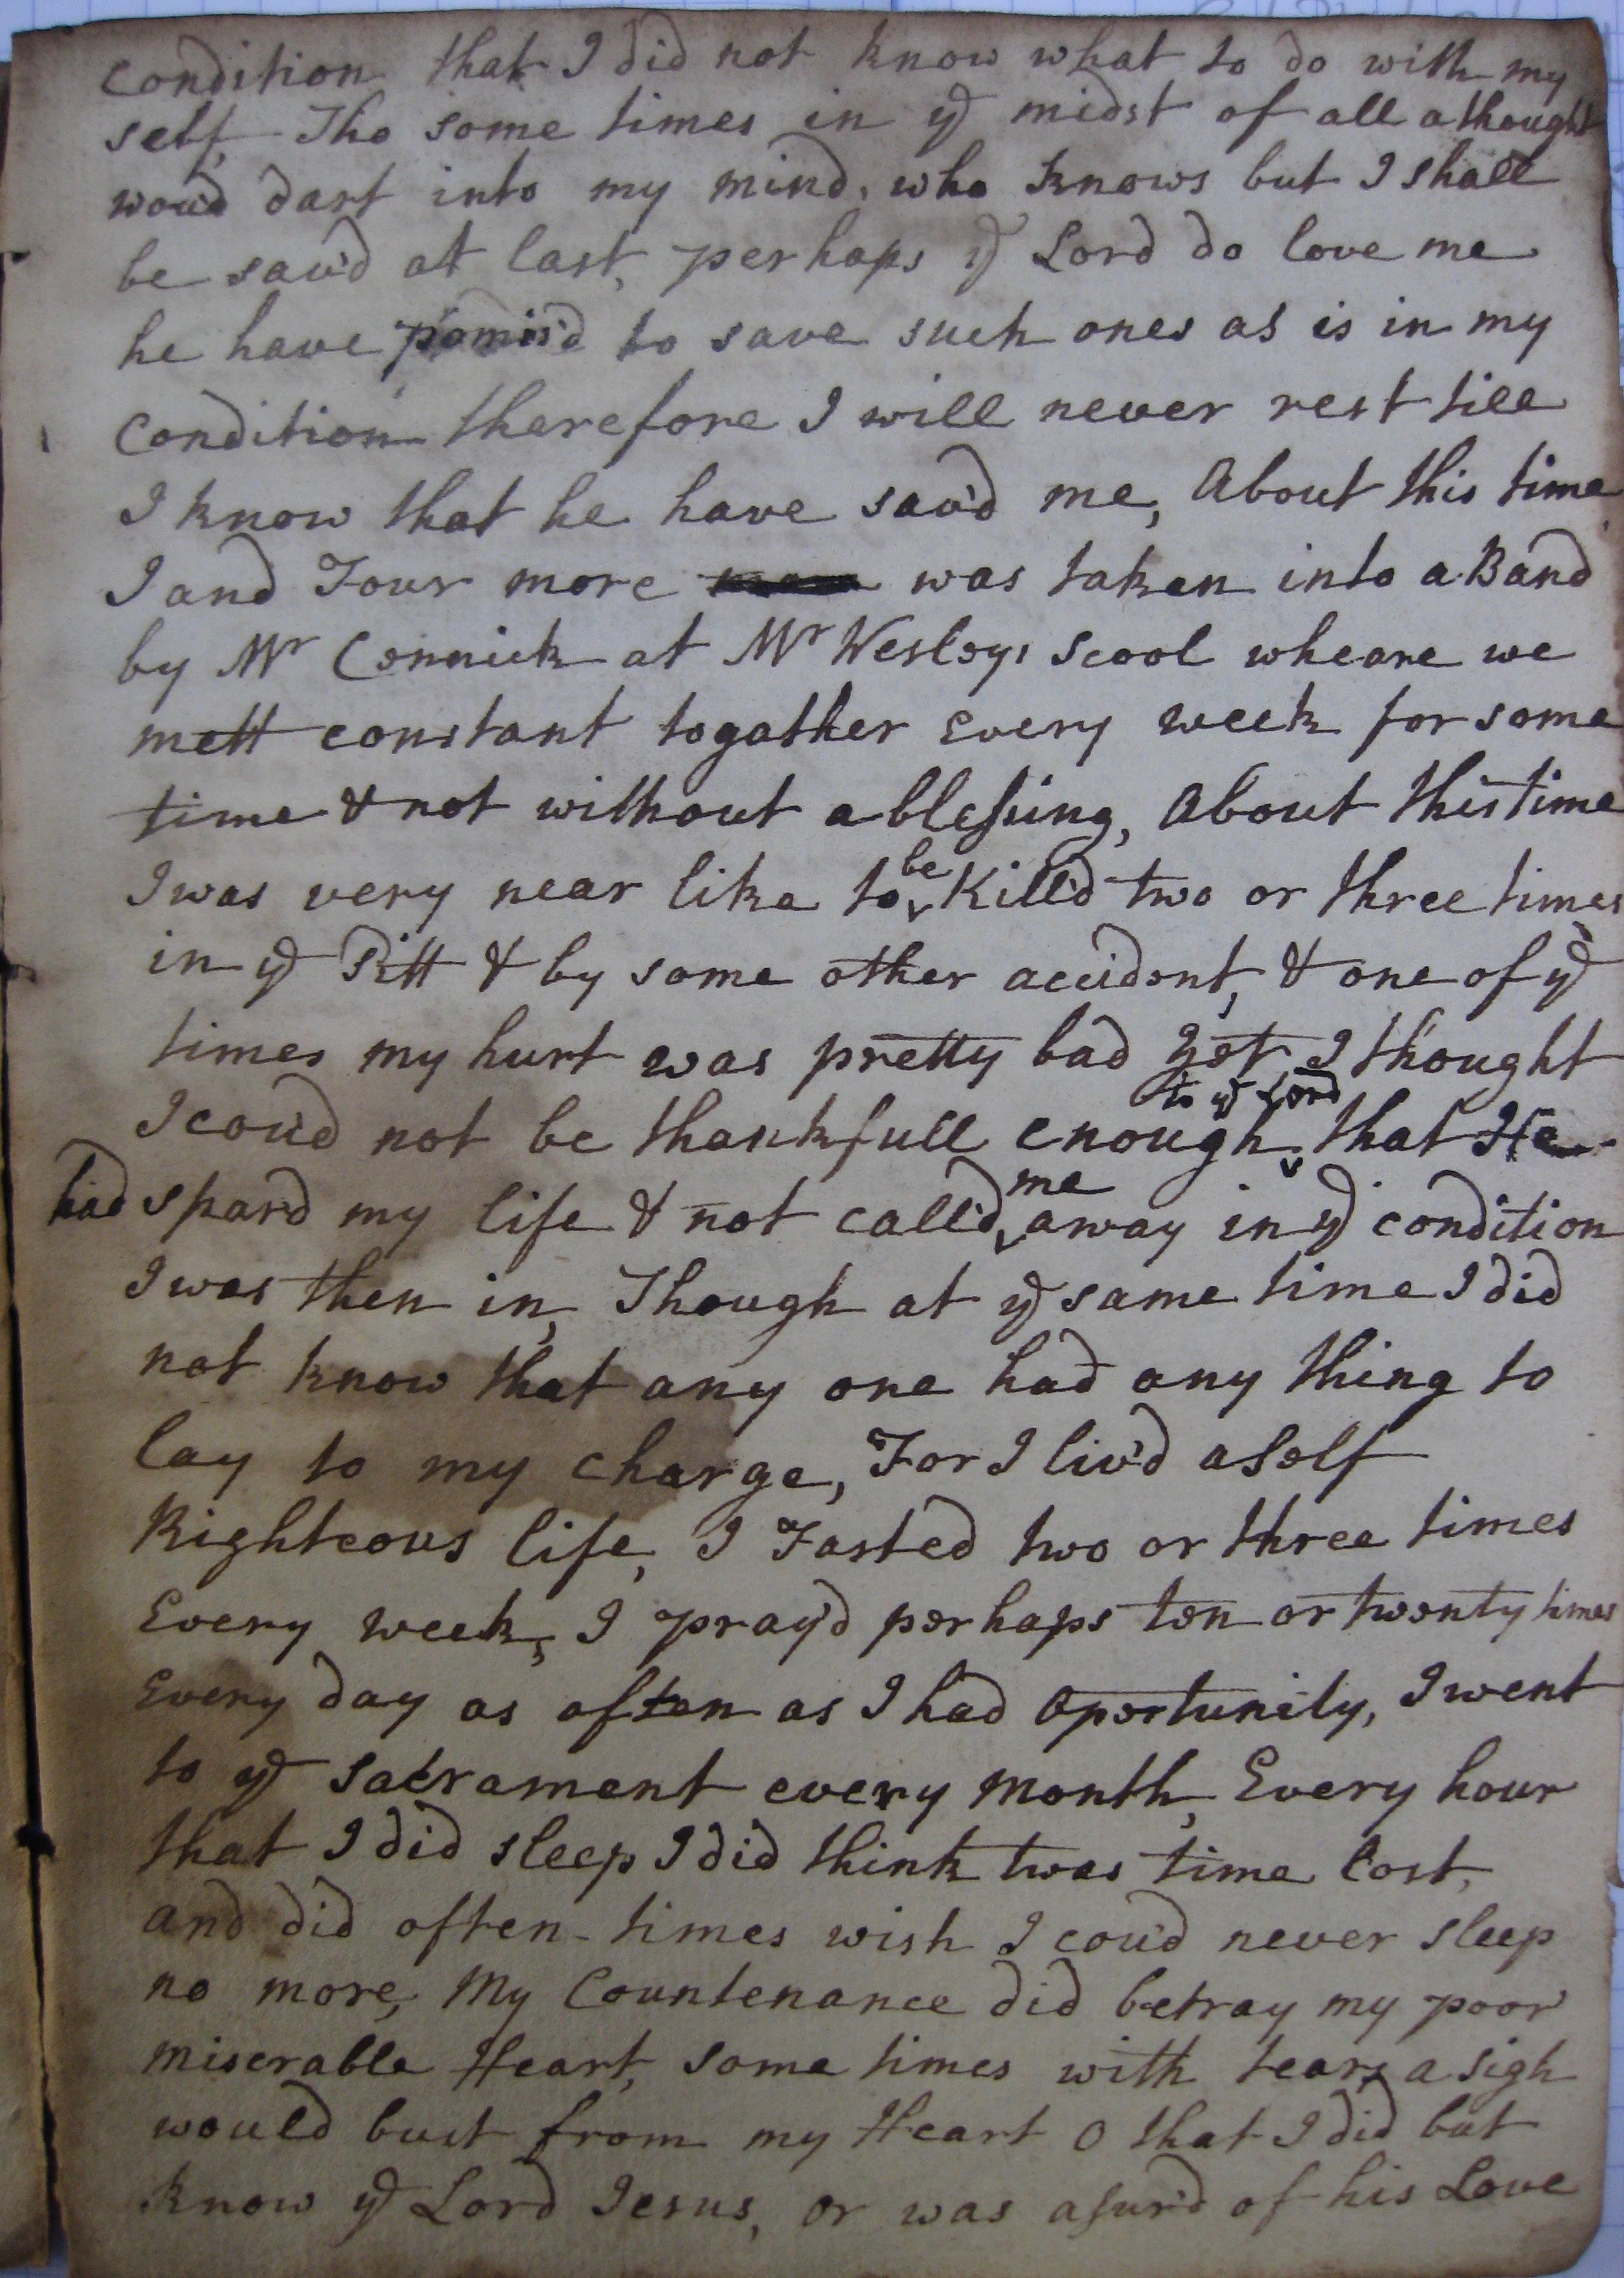 Condition that I did not know what to do with my
self, Tho some times in ye midst of all a thought
wou'd dart into my mind, who knows but I shall
be sav'd at last, perhaps ye Lord do love me
he have promis'd to save such ones as is in my
Condition therefore I will never rest till
I know that he have sav'd me, About this time
I and Four more was taken into a Band
by Mr Cennick at Mr Wesleys Scool wheare we
mett constant togather Every week for some
time & not without a blessing, About this time
I was very near like to be Kill'd two or three times
in ye Pitt & by some other accident, & one of ye
times my hurt was pretty bad Yet, I thought
I cou'd not be thankfull enough to ye Lord that He
had spard my life & not call'd me away in ye condition
I was then in, Though at ye same time I did
not know that any one had any thing to
lay to my charge, For I liv'd a Self
Righteous life, I Fasted two or three times
Every week, I pray'd perhaps ten or twenty times
Every day as often as I had Oportunity, I went
to ye Sacrament every month, Every hour
that I did sleep I did think twas time lost,
and did often-times wish I cou'd never sleep
no more, My Countenance did betray my poor
miserable Heart, some times with tears a sigh
would bust from my Heart O that I did but
know ye Lord Jesus, or was asur'd of his Love